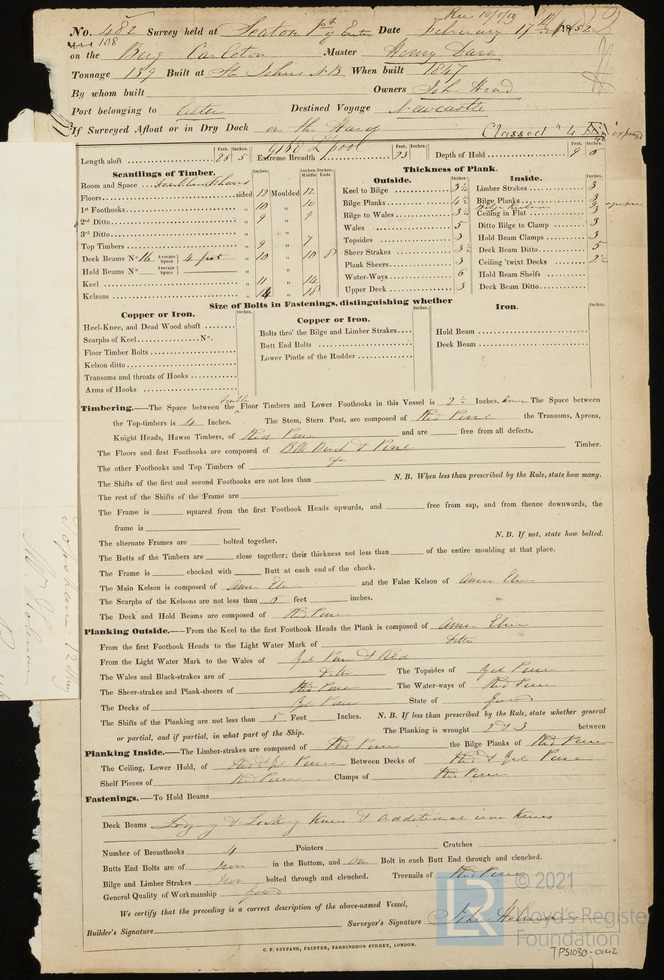 No. 482 Survey held at Seaton Date February 17 1852
on the Brig Master Henry
Tonnage 159 Built at St Johns N.B. When built 1847
By whom built Owners John Head
Port belonging to Exeter Destined Voyage Newcastle
If Surveyed Afloat or in Dry Dock on the Hard Classed
Length aloft 85 5 Extreme Breadth 23 Depth of Hold 9
Scantlings of Timber.
Thickness of Plank.
Outside. Inside.
Room and Space
Floors sided 12 Moulded 12
1st Foothooks " 10 " 10
2nd Ditto " 9 " 9
3rd Ditto " "
Top Timbers " 9 " 7
Deck Beams No 16 Average Space 4 feet " 10 " 10 8
Hold Beams No Average Space " "
Keel " 11 " 14
Kelsons " 14 "
Keel to Bilge 3½
Bilge Planks
Bilge to Wales
Wales 5
Topsides 3
Sheer Strakes
Plank Sheers 3
Water-Ways 6
Upper Deck 3
Limber Strakes 3
Bilge Planks
Ceiling in Flat 3
Ditto Bilge to Clamp 3
Hold Beam Clamps 3
Deck Beam Ditto 5
Ceiling 'twixt Decks 2½
Hold Beam Shelfs
Deck Beam Ditto
Size of Bolts in Fastenings, distinguishing whether
Copper or Iron.
Heel-Knee, and Dead Wood abaft
Scarphs of Keel No.
Floor Timber Bolts
Kelson ditto
Transoms and throats of Hooks
Arms of Hooks
Copper or Iron.
Bolts thro' the Bilge and Limber Strakes
Butt End Bolts
Lower Pintle of the Rudder
Iron.
Hold Beam
Deck Beam
Timbering.—The Space between the Floor Timbers and Lower Foothooks in this Vessel is 2½ Inches. The Space between
the Top-timbers is 4 Inches. The Stem, Stern Post, are composed of Red Pine the Transoms, Aprons,
Knight Heads, Hawse Timbers, of Red Pine and are free from all defects.
The Floors and first Foothooks are composed of & Pine Timber.
The other Foothooks and Top Timbers of
The Shifts of the first and second Foothooks are not less than N.B. When less than prescribed by the Rule, state how many.
The rest of the Shifts of the Frame are
The Frame is squared from the first Foothook Heads upwards, and free from sap, and from thence downwards, the
frame is
The alternate Frames are bolted together. N.B. If not, state how bolted.
The Butts of the Timbers are close together; their thickness not less than of the entire moulding at that place.
The Frame is chocked with Butt at each end of the chock.
The Main Kelson is composed of Amer Elm and the False Kelson of Amer Elm
The Scarphs of the Kelsons are not less than 5 feet inches.
The Deck and Hold Beams are composed of Red Pine
Planking Outside.—From the Keel to the first Foothook Heads the Plank is composed of Amer Elm
From the first Foothook Heads to the Light Water Mark of Ditto
From the Light Water Mark to the Wales of Yel Pine & Red
The Wales and Black-strakes are of Ditto The Topsides of Yel Pine
The Sheer-strakes and Plank-sheers of Red Pine The Water-ways of Red Pine
The Decks of Yel Pine State of Good
The Shifts of the Planking are not less than 5 Feet Inches. N.B. If less than prescribed by the Rule, state whether general
or partial, and if partial, in what part of the Ship. The Planking is wrought 2 & 3 between
Planking Inside.—The Limber-strakes are composed of Red Pine the Bilge Planks of Red Pine
The Ceiling, Lower Hold, of Red & Yel Pine Between Decks of Red & Yel Pine
Shelf Pieces of Red Pine Clamps of Red Pine
Fastenings.—To Hold Beams
Deck Beams Lodging & Knees & Additional iron Knees
Number of Breasthooks 4 Pointers Crutches
Butts End Bolts are of Iron in the Bottom, and One Bolt in each Butt End through and clenched.
Bilge and Limber Strakes Iron bolted through and clenched. Treenails of Red Pine
General Quality of Workmanship Good
We certify that the preceding is a correct description of the above-named Vessel,
Builder's Signature Surveyor's Signature John
C. F. SEYFANG, PRINTER, FARRINGDON STREET, LONDON.
LR © 2021
Lloyd's Register
Foundation
TPS1030-0142